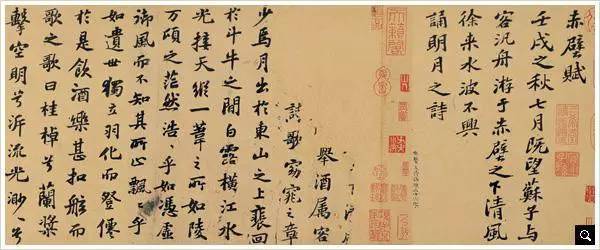 赤壁賦
壬戌之秋七月既望蘇子與
客汎舟游于赤壁之下清風
徐来水波不興
誦明月之詩
舉酒属客
歌窈窕之章
少焉月出於東山之上裵回
於斗牛之間白露横江水
光接天縱一葦之所如陵
萬頃之茫然浩〻乎如憑虚
御風而不知其所止飄〻乎
如遺世獨立羽化而登僊
於是飲酒樂甚扣舷而
歌之歌曰桂棹兮蘭槳
擊空明兮泝流光渺〻兮